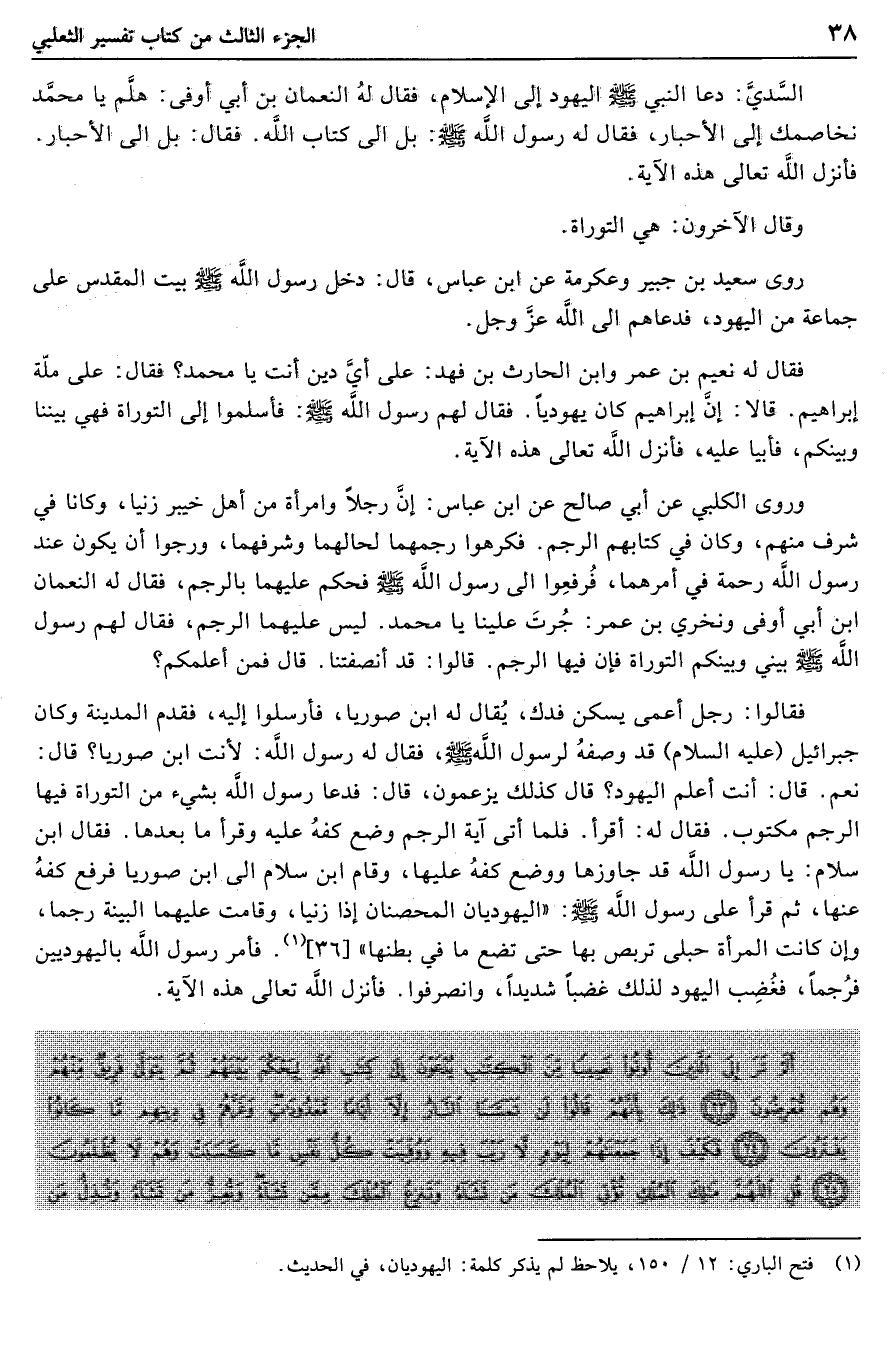 ٣٨ الجزء الثالث من كتاب تفسير الثعلبي
السَّديَّ: دعا النبي ﷺ اليهود إلى الإسلام، فقال لهُ النعمان بن أبي أوفى: هلَّم يا محمَّد
نخاصمك إلى الأحبار، فقال له رسول اللَّه ﷺ: بل الى كتاب اللَّه. فقال: بل الى الأحبار.
فأنزل اللَّه تعالى هذه الآية.
وقال الآخرون: هي التوراة.
روى سعيد بن جبير وعكرمة عن ابن عباس، قال: دخل رسول اللَّه ﷺ بيت المقدس على
جماعة من اليهود، فدعاهم الى اللَّه عزَّ وجل.
فقال له نعيم بن عمر وابن الحارث بن فهد: على أيَّ دين أنت يا محمد؟ فقال: على ملّة
إبراهيم. قالا: إنَّ إبراهيم كان يهودياً. فقال لهم رسول اللَّه ﷺ: فأسلموا إلى التوراة فهي بيننا
وبينكم، فأبيا عليه، فأنزل اللَّه تعالى هذه الآية.
وروى الكلبي عن أبي صالح عن ابن عباس: إنَّ رجلاً وامرأة من أهل خيبر زنيا، وكانا في
شرف منهم، وكان في كتابهم الرجم. فكرهوا رجمهما لحالهما وشرفهما، ورجوا أن يكون عند
رسول اللَّه رحمة في أمرهما، فُرفعِوا الى رسول اللَّه ﷺ فحكم عليهما بالرجم، فقال له النعمان
ابن أبي أوفى ونخري بن عمر: جُرتَ علينا يا محمد. ليس عليهما الرجم، فقال لهم رسول
اللَّه ﷺ بيني وبينكم التوراة فإن فيها الرجم. قالوا: قد أنصفتنا. قال فمن أعلمكم؟
فقالوا: رجل أعمى يسكن فدك، يُقال له ابن صوريا، فأرسلوا إليه، فقدم المدينة وكان
جبرائيل (عليه السلام) قد وصفهُ لرسول اللَّهﷺ، فقال له رسول اللَّه: لأنت ابن صوريا؟ قال:
نعم. قال: أنت أعلم اليهود؟ قال كذلك يزعمون، قال: فدعا رسول اللَّه بشيء من التوراة فيها
الرجم مكتوب. فقال له: أقرأ. فلما أتى آية الرجم وضع كفهُ عليه وقرأ ما بعدها. فقال ابن
سلام: يا رسول اللَّه قد جاوزها ووضع كفهُ عليها، وقام ابن سلام الى ابن صوريا فرفع كفهُ
عنها، ثم قرأ على رسول اللَّه ﷺ: «اليهوديان المحصنان إذا زنيا، وقامت عليهما البينة رجما،
وإن كانت المرأة حبلى تربص بها حتى تضع ما في بطنها» [٣٦](١). فأمر رسول اللَّه باليهوديين
فرُجماً، فغُضِب اليهود لذلك غضباً شديداً، وانصرفوا. فأنزل اللَّه تعالى هذه الآية.
ألم تر إلى الذين أوتوا نصيبا من الكتاب يدعون إلى كتاب الله ليحكم بينهم ثم يتولى فريق منهم
وهم معرضون ٢٣ ذلك بأنهم قالوا لن تمسنا النار إلا أياما معدودات وغرهم في دينهم ما كانوا
يفترون ٢٤ فكيف إذا جمعناهم ليوم لا ريب فيه ووفيت كل نفس ما كسبت وهم لا يظلمون
٢٥ قل اللهم مالك الملك تؤتي الملك من تشاء وتنزع الملك ممن تشاء وتعز من تشاء وتذل من
(١) فتح الباري: ١٢ / ١٥٠، يلاحظ لم يذكر كلمة: اليهوديان، في الحديث.